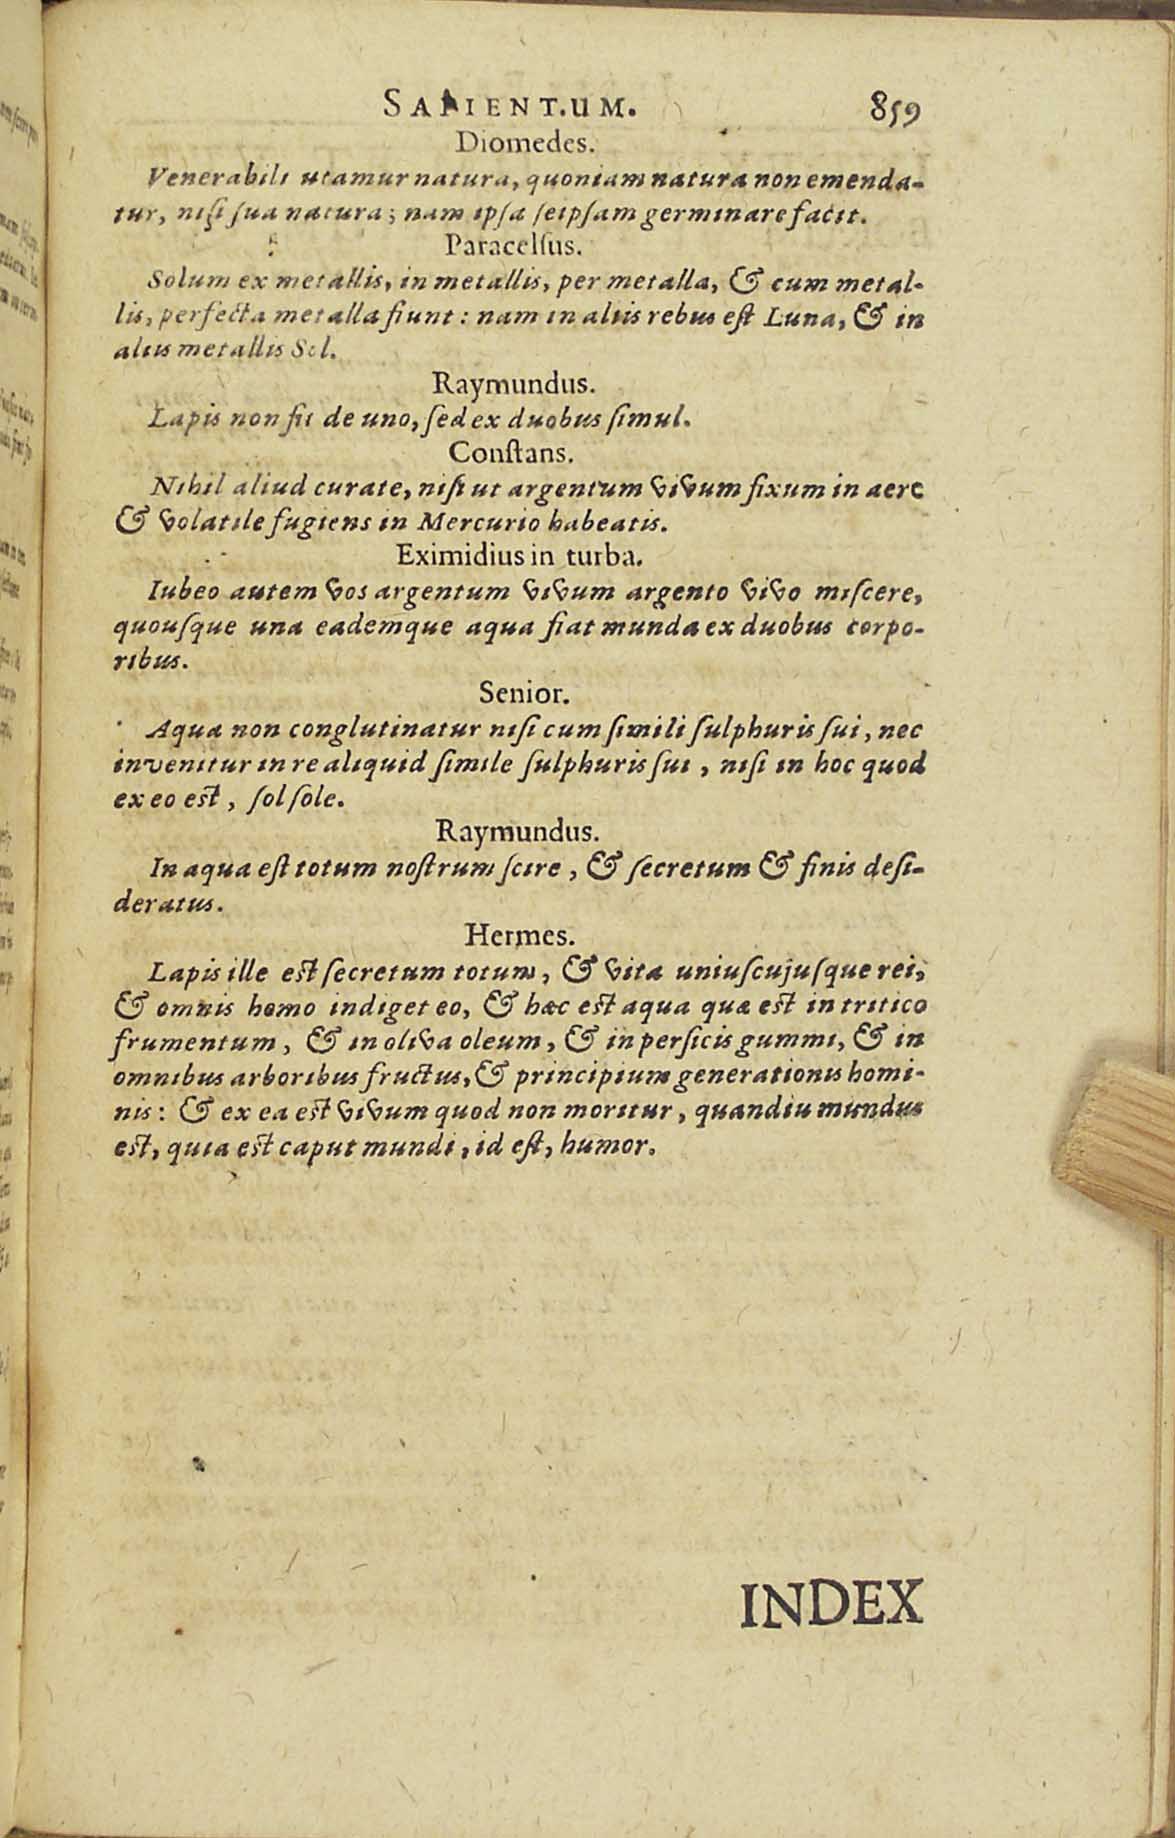 SAPIENT.UM. 859
Diomedes.
Venerabili utamur natura, quoniam natura non emenda-
tur, niſi ſua natura; nam ipſa ſeipſam germinare facit.
Paracelſus.
Solum ex metallis, in metallis, per metalla, & cum metal-
lis, perfecta metalla fiunt: nam in aliis rebus eſt Luna, & in
aliis metallis Sol.
Raymundus.
Lapis non fit de uno, ſed ex duobus ſimul.
Conſtans.
Nihil aliud curate, niſi ut argentum vivum fixum in aere
& volatile fugiens in Mercurio habeatis.
Eximidius in turba.
Iubeo autem vos argentum vivum argento vivo miſcere,
quouſque una eademque aqua fiat munda ex duobus corpo-
ribus.
Senior.
Aqua non conglutinatur niſi cum ſimili ſulphuris ſui, nec
invenitur in re aliquid ſimile ſulphuris ſui, niſi in hoc quod
ex eo eſt, ſol ſole.
Raymundus.
In aqua eſt totum noſtrum ſcire, & ſecretum & finis deſi-
deratus.
Hermes.
Lapis ille eſt ſecretum totum, & vita uniuſcujuſque rei,
& omnis homo indiget eo, & hæc eſt aqua quæ eſt in tritico
frumentum, & in oliva oleum, & in perſicis gummi, & in
omnibus arboribus fructus, & principium generationis homi-
nis: & ex ea eſt vivum quod non moritur, quandiu mundus
eſt, quia eſt caput mundi, id eſt, humor.
INDEX